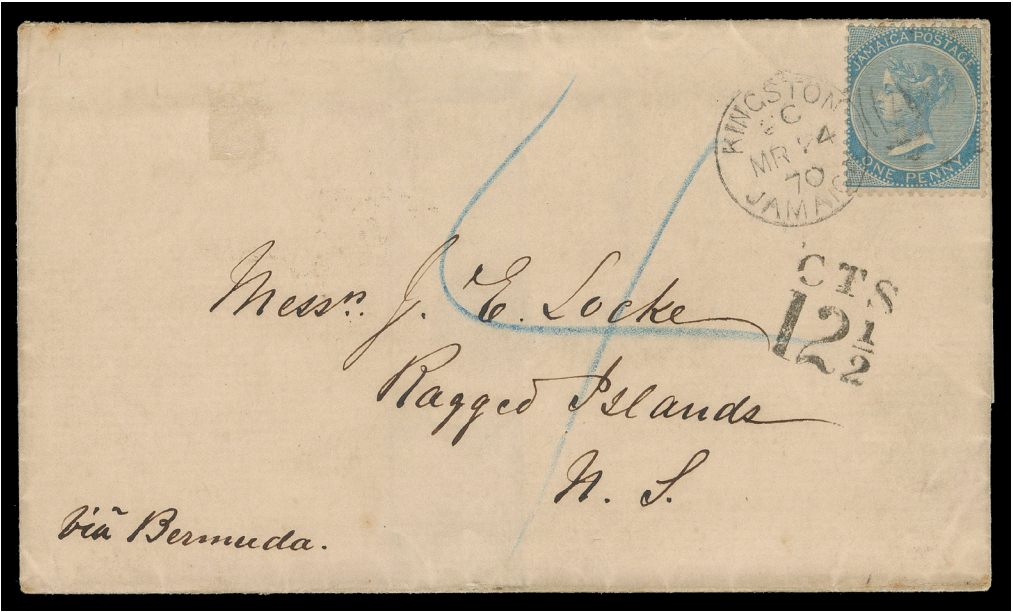 JAMAICA POSTAGE
ONE PENNY
KINGSTON
C
MR 24
70
JAMAIC
CTS
12 1/2
4
Messrs. J. E. Locke
Ragged Islands
N. S.
via Bermuda.